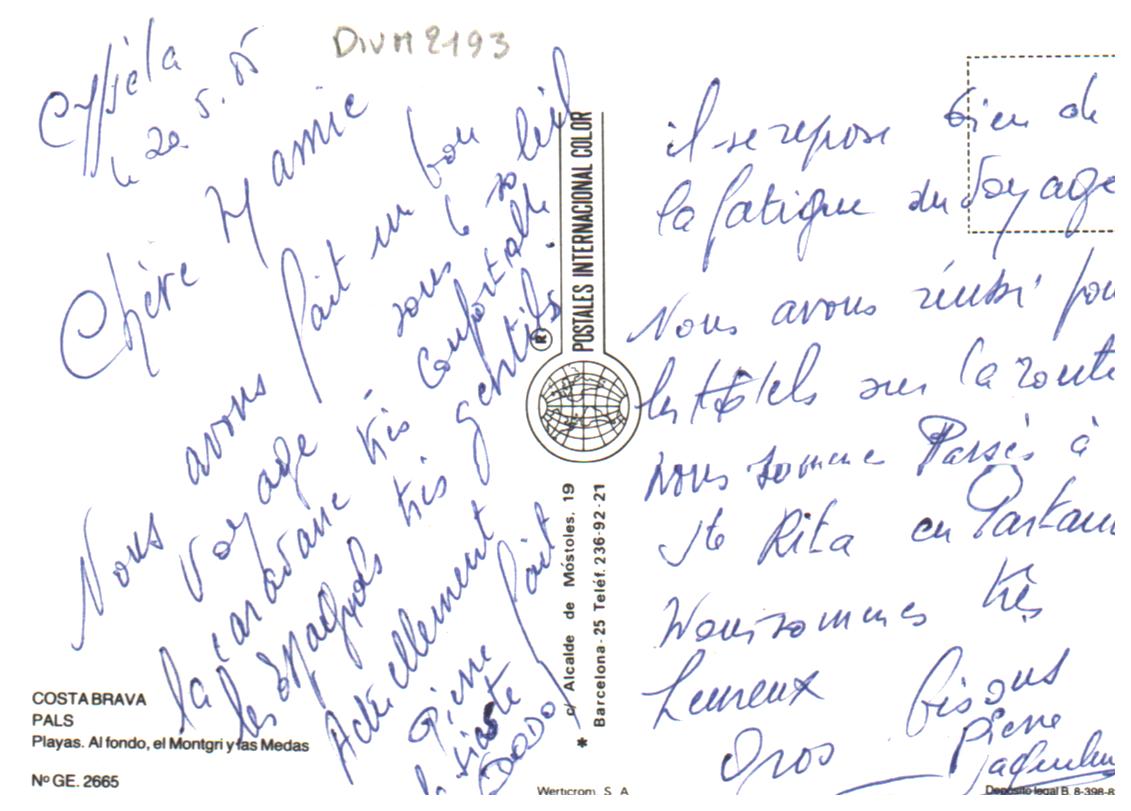 DIVM2193
le 20.5.85
Chère Mamie
Nous avons fait un bon
voyage sous le soleil
la caravane très confortable
les Espagnols très gentils.
Actuellement
Pierre fait
la sieste
DODO
il se repose bien de
la fatigue du voyage
Nous avons réussi pou
les hôtels sur la route
nous somme Passés à
Ste Rita en Partan
Nous sommes très
heureux bisous
Gros Pierre
POSTALES INTERNACIONAL COLOR
®
c/ Alcalde de Móstoles, 19
Barcelona-25 Teléf. 236-92-21
*
COSTA BRAVA
PALS
Playas. Al fondo, el Montgri y las Medas
Nº GE. 2665
Werticrom, S. A.
Depósito legal B. 8-398-8